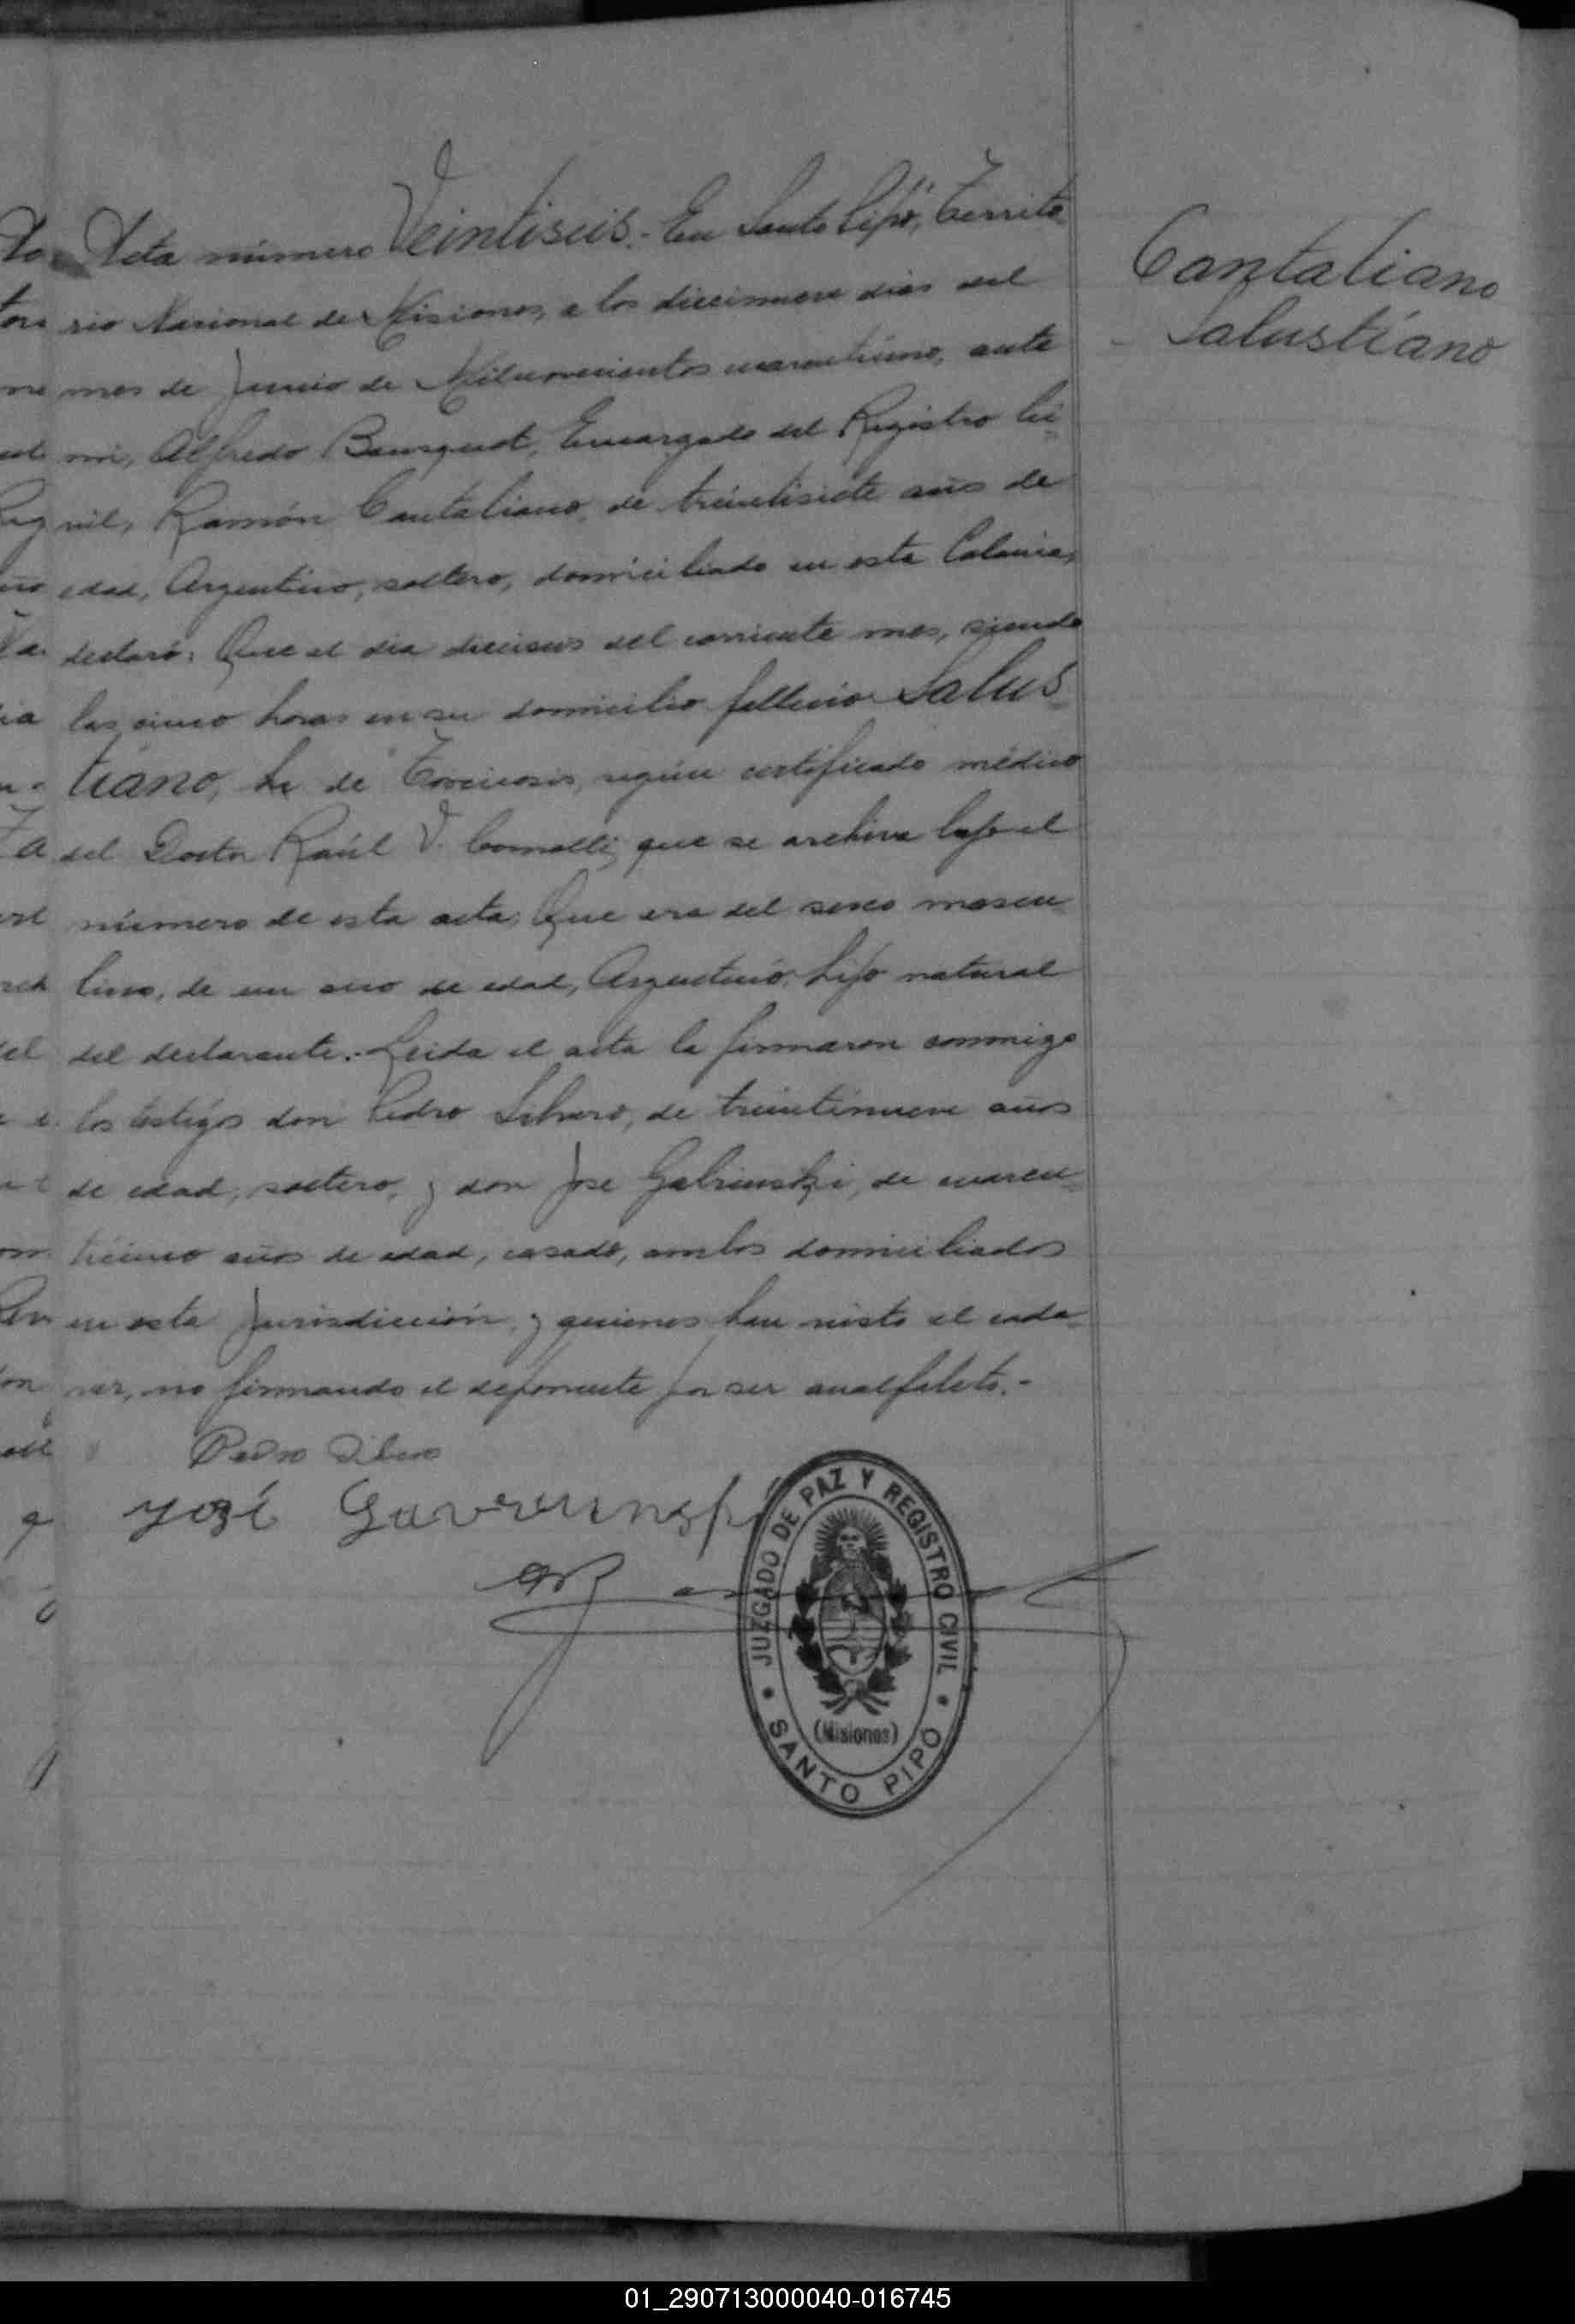 Acta número Veintiseis.- En Santo Pipó, Territo-
rio Nacional de Misiones, a los diecinueve dias del
mes de Junio de Milnovecientos cuarentiuno, ante
mi, Alfredo Bousquet, Encargado del Registro Ci-
vil, Ramón Cantaliano, de treintisiete años de
edad, Argentino, soltero, domiciliado en esta Colonia,
declaró: Que el dia dieciseis del corriente mes, siendo
las cinco horas en su domicilio fallecio Salus-
tiano, de Toxicosis, según certificado médico
del Doctor Raúl V. Comolli, que se archiva bajo el
número de esta acta; Que era del sexo mascu-
lino, de un año de edad, Argentino, hijo natural
del declarante.- Leida el acta la firmaron conmigo
los testigos don Pedro Silvero, de treintinueve años
de edad, soltero, y don Jose Gabrinski, de cuaren-
ticinco años de edad, casado, ambos domiciliados
en esta Jurisdicción, y quienes han visto el cada-
ver, no firmando el deponente por ser analfabeto.-
Cantaliano
Salustiano
Pedro Silvero
José
JUZGADO DE PAZ Y REGISTRO CIVIL
(Misiones)
SANTO PIPÓ
01_290713000040-016745